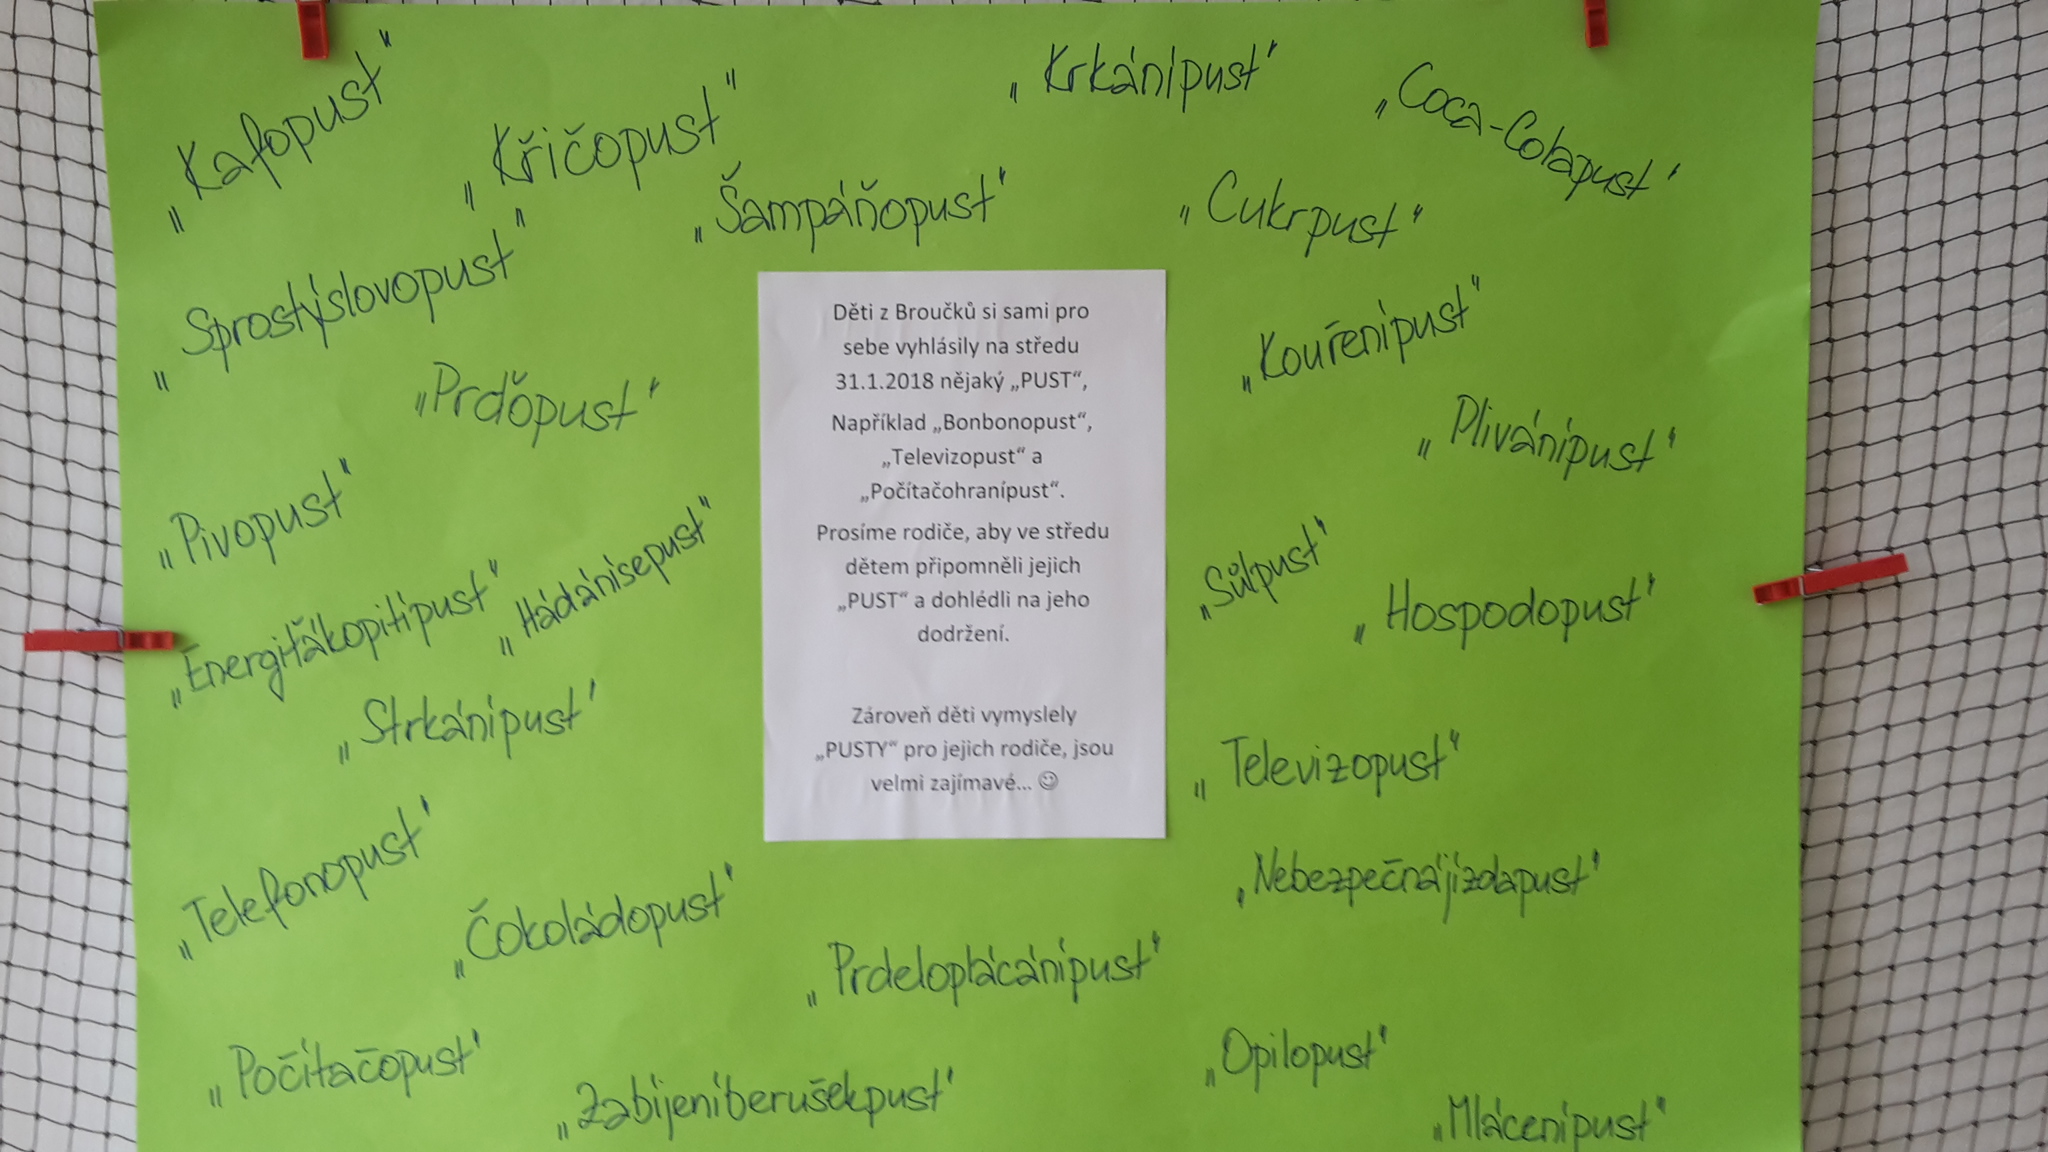 „Kafopust"
„Křičopust"
„Krkánípust"
„Coca-Colapust"
„Šampáňopust"
„Cukrpust"
„Sprostýslovopust"
„Prďopust"
„Kouřenípust"
„Plivánípust"
„Pivopust"
„Hádánísepust"
„Energiťákopitípust"
„Strkánípust"
Děti z Broučků si sami pro
sebe vyhlásily na středu
31.1.2018 nějaký „PUST“,
Například „Bonbonopust“,
„Televizopust“ a
„Počítačohranípust“.
Prosíme rodiče, aby ve středu
dětem připomněli jejich
„PUST“ a dohlédli na jeho
dodržení.
Zároveň děti vymyslely
„PUSTY“ pro jejich rodiče, jsou
velmi zajímavé... ☺
„Sůlpust"
„Hospodopust"
„Televizopust"
„Nebezpečnájízdapust"
„Telefonopust"
„Čokoládopust"
„Prdeloplácánípust"
„Počítačopust"
„Zabíjeníberušekpust"
„Opilopust"
„Mlácenípust"